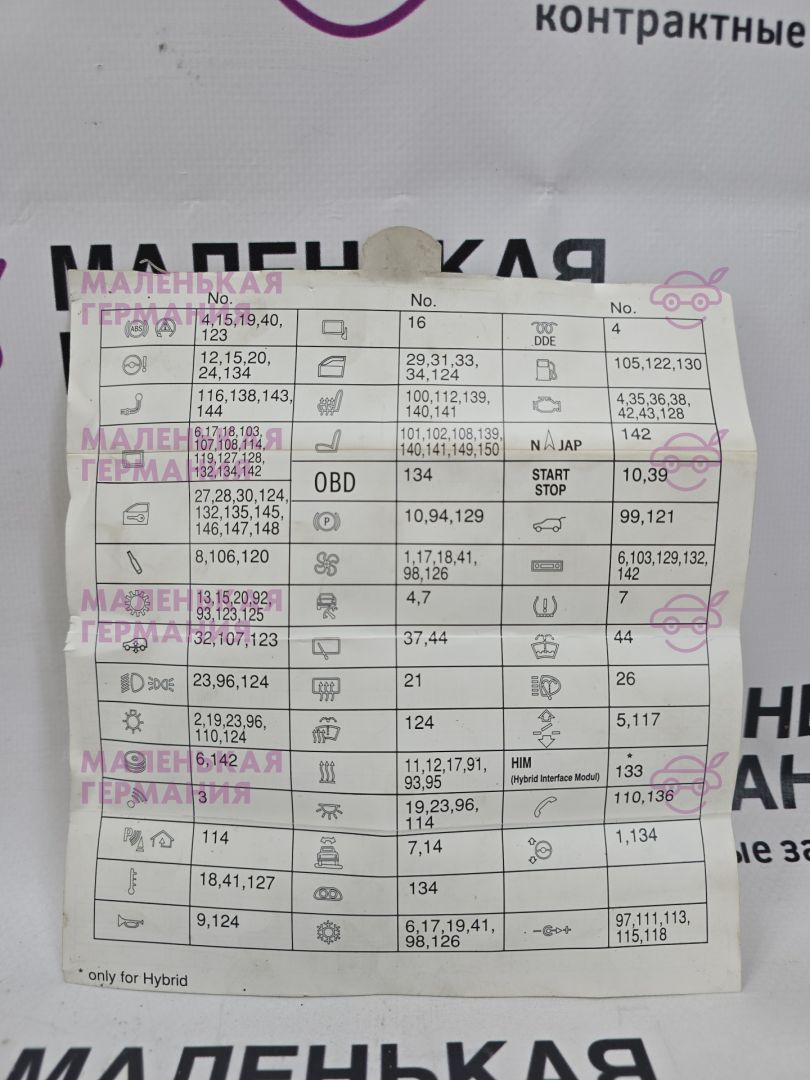 контрактные
МАЛЕНЬКАЯ
МАЛЕНЬКАЯ
ГЕРМАНИЯ
No.
No.
No.
ABS
4,15,19,40,
123
16
DDE
4
12,15,20,
24,134
29,31,33,
34,124
105,122,130
116,138,143,
144
100,112,139,
140,141
4,35,36,38,
42,43,128
МАЛЕНЬКАЯ
ГЕРМАНИЯ
6,17,18,103,
107,108,114,
119,127,128,
132,134,142
101,102,108,139,
140,141,149,150
N JAP
142
OBD
134
START
STOP
10,39
27,28,30,124,
132,135,145,
146,147,148
P
10,94,129
99,121
8,106,120
1,17,18,41,
98,126
6,103,129,132,
142
МАЛЕНЬКАЯ
ГЕРМАНИЯ
13,15,20,92,
93,123,125
4,7
7
32,107,123
37,44
44
23,96,124
21
26
2,19,23,96,
110,124
124
5,117
МАЛЕНЬКАЯ
ГЕРМАНИЯ
6,142
11,12,17,91,
93,95
HIM
(Hybrid Interface Modul)
*
133
3
19,23,96,
114
110,136
P
114
7,14
1,134
18,41,127
134
9,124
6,17,19,41,
98,126
97,111,113,
115,118
* only for Hybrid
МАЛЕНЬКАЯ